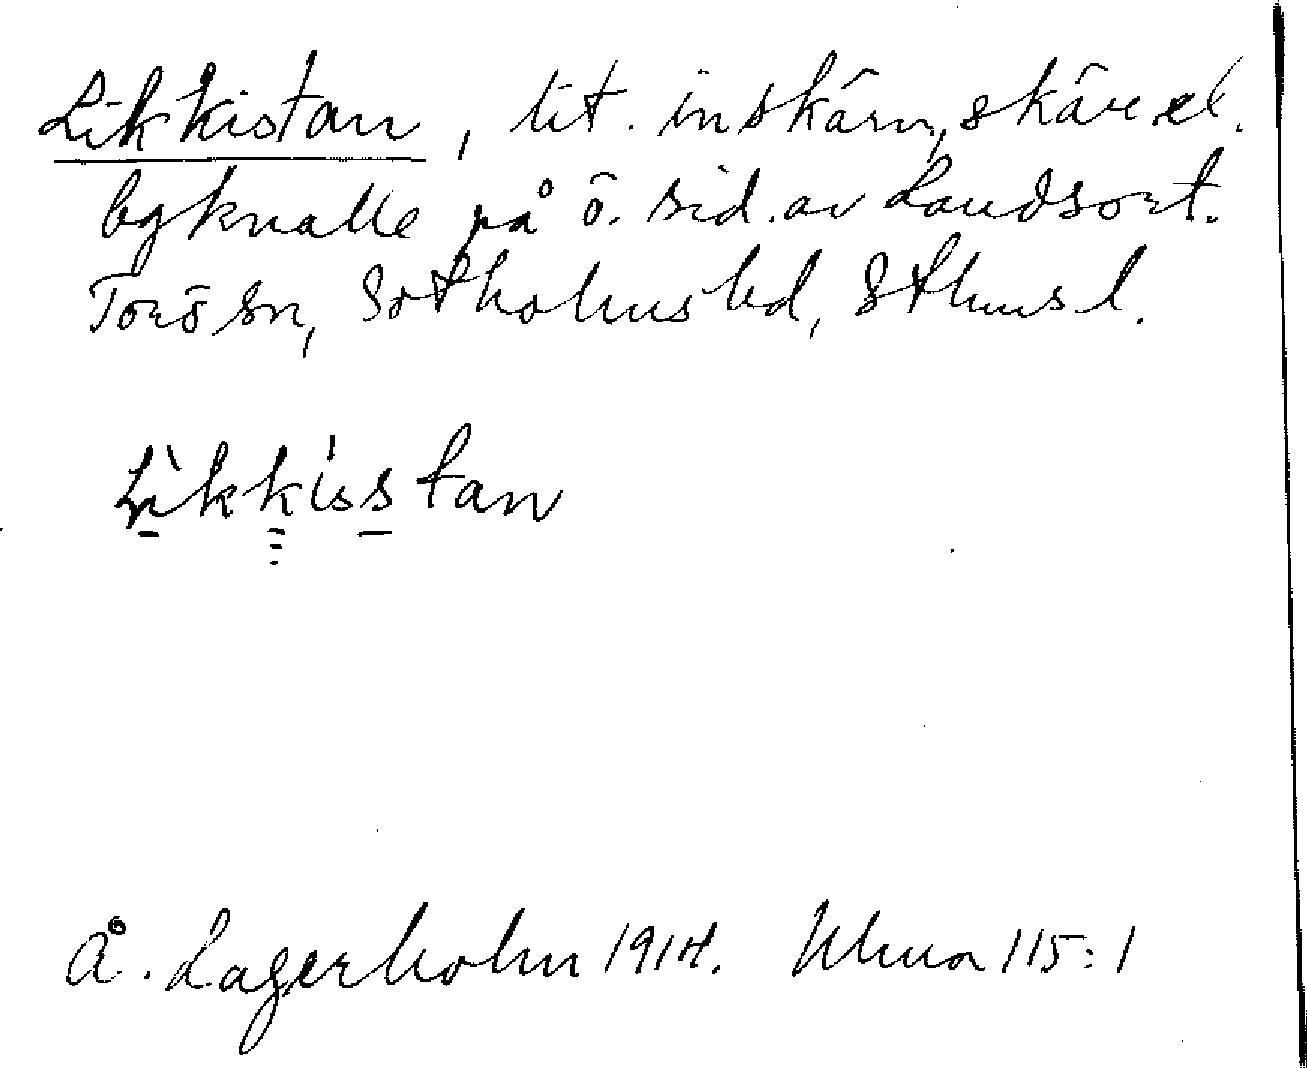 Likkistan, lit. inskärn, skäre el.
bgknalle på ö. sid. av Landsort.
Torö sn, Sotholms hd, Sthms l.
Lìkkísstan
Å. Lagerholm 1914. Uhua 115:1